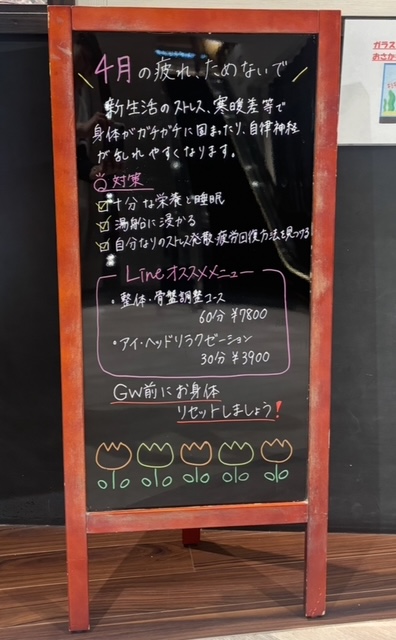 4月の疲れ、ためないで
新生活のストレス、寒暖差等で
身体がガチガチに固まったり、自律神経
が乱れやすくなります。
対策
十分な栄養と睡眠
湯船に浸かる
自分なりのストレス発散・疲労回復方法を見つける
Lineオススメメニュー
・整体・骨盤調整コース
60分 ¥7800
・アイ・ヘッドリラクゼーション
30分 ¥3900
GW前にお身体
リセットしましょう!
ガラス